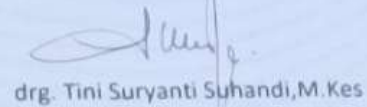 drg. Tini Suryanti Suhandi,M.Kes